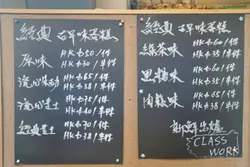 經典 古早味蛋糕
原味
HK$50/件
HK$30/半件
HK$65/件
HK$38/半件
HK$65/件
HK$38/半件
HK$70/件
HK$38/半件
經典 古早味蛋糕
綠茶味
HK$60/件
HK$35/半件
黑糖味
HK$60/件
HK$35/半件
肉鬆味
HK$65/件
HK$38/半件
新鮮出爐
CLASS
WORK